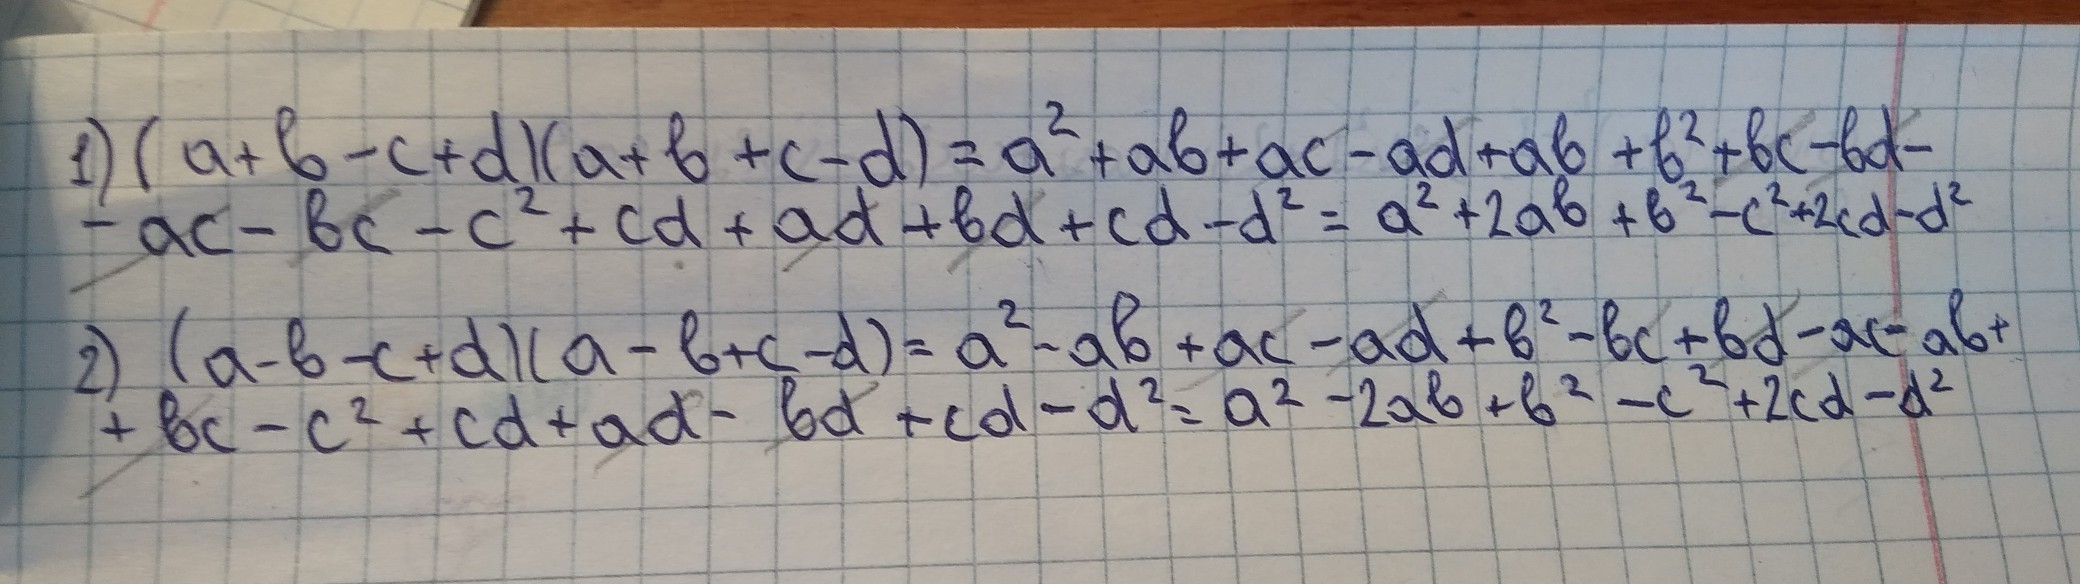 1) (a+b-c+d)(a+b+c-d)=a²+ab+ac-ad+ab+b²+bc-bd-
-ac-bc-c²+cd+ad+bd+cd-d²=a²+2ab+b²-c²+2cd-d²
2) (a-b-c+d)(a-b+c-d)=a²-ab+ac-ad+b²-bc+bd-ac-ab+
+bc-c²+cd+ad-bd+cd-d²=a²-2ab+b²-c²+2cd-d²